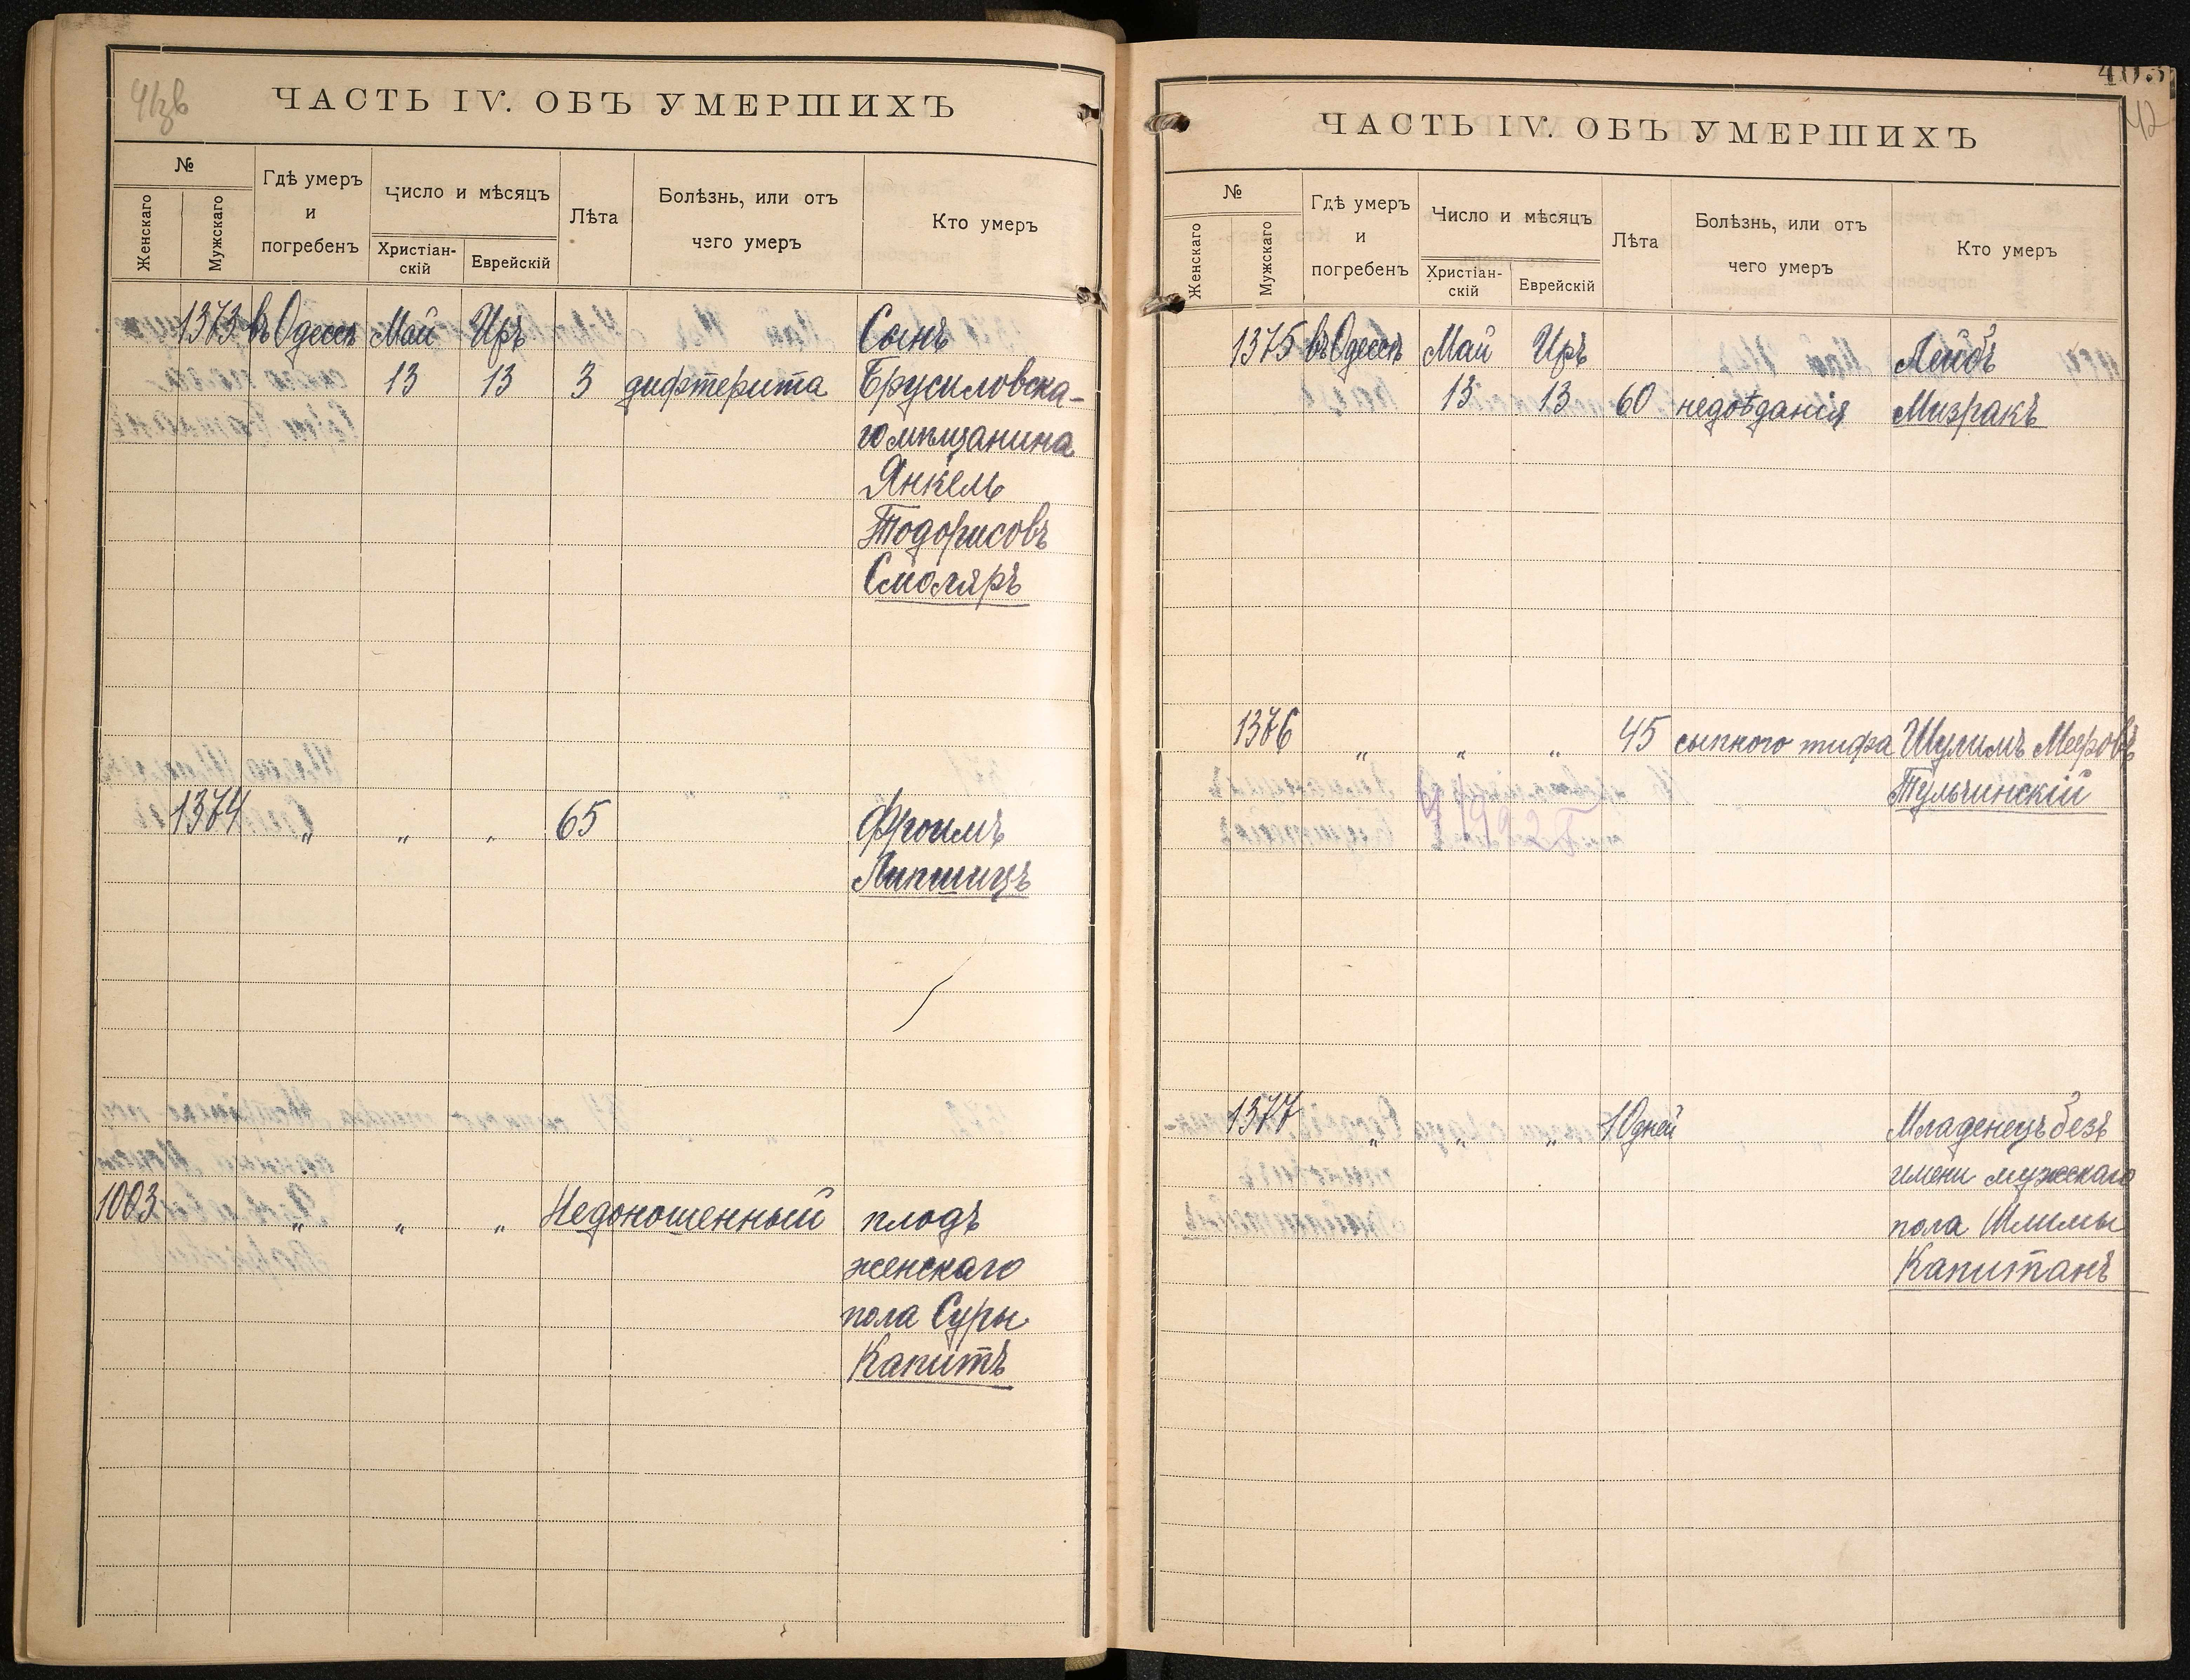 ЧАСТЬ IV. ОБЪ УМЕРШИХЪ
№
Женскаго
Мужскаго
Гдѣ умеръ
и
погребенъ
Число и мѣсяцъ
Христіан-
скій
Еврейскій
Лѣта
Болѣзнь, или отъ
чего умеръ
Кто умеръ
1373 въ Одессѣ Май Иръ Сынъ
13 13 3 дифтерита Брусиловска-
го мѣщанина
Янкель
Тодорисовъ
Смоляръ
1374 „ „ „ 65 Фроимъ
Липшицъ
1003 „ „ „ Недоношенный плодъ
женскаго
пола Суры
Капитъ
403
42
ЧАСТЬ IV. ОБЪ УМЕРШИХЪ
№
Женскаго
Мужскаго
Гдѣ умеръ
и
погребенъ
Число и мѣсяцъ
Христіан-
скій
Еврейскій
Лѣта
Болѣзнь, или отъ
чего умеръ
Кто умеръ
1375 въ Одессѣ Май Иръ Лейбъ
13 13 60 недоѣданія Мизракъ
1376 „ „ „ 45 сыпного тифа Шулимъ Мееровъ
Тульчинскій
1377 „ „ „ 10 дней Младенецъ безъ
имени мужскаго
пола Шлимы
Капитанъ